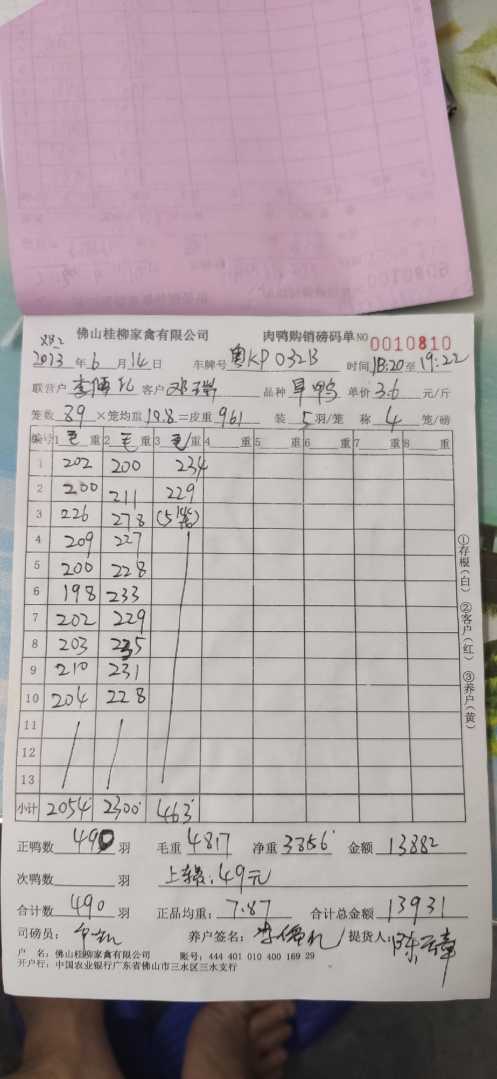 佛山桂柳家禽有限公司 肉鸭购销磅码单 NO 0010810
2013年6月14日 车牌号 粤KP032B 时间 18:20至19:22
联营户 客户 邓 品种 旱鸭 单价 3.6 元/斤
笼数 89 ×笼均重 10.8 =皮重 961 装 5 羽/笼 称 4 笼/磅
编号 1 毛 重 2 毛 重 3 毛 重 4 重 5 重 6 重 7 重 8 重
1 202 200 234
2 200 211 229
3 226 278 (5
4 209 227
5 200 228
6 198 233
7 202 229
8 203 235
9 210 231
10 204 228
11
12
13
小计 2054 2300 463
正鸭数 490 羽 毛重 4817 净重 3856 金额 13882
次鸭数 羽 上车费:49元
合计数 490 羽 正品均重: 7.87 合计总金额 13931
司磅员: 养户签名: 提货人:陈
户 名:佛山桂柳家禽有限公司 账号:444 401 010 400 169 29
开户行:中国农业银行广东省佛山市三水区三水支行
①存根(白) ②客户(红) ③养户(黄)